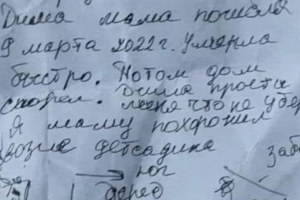 Дима мама погибла
9 марта 2022г. Умерла
быстро. Потом дом
сгорел. Дима прости
меня что не убер
Я маму похоронил
возле детсадика
юг